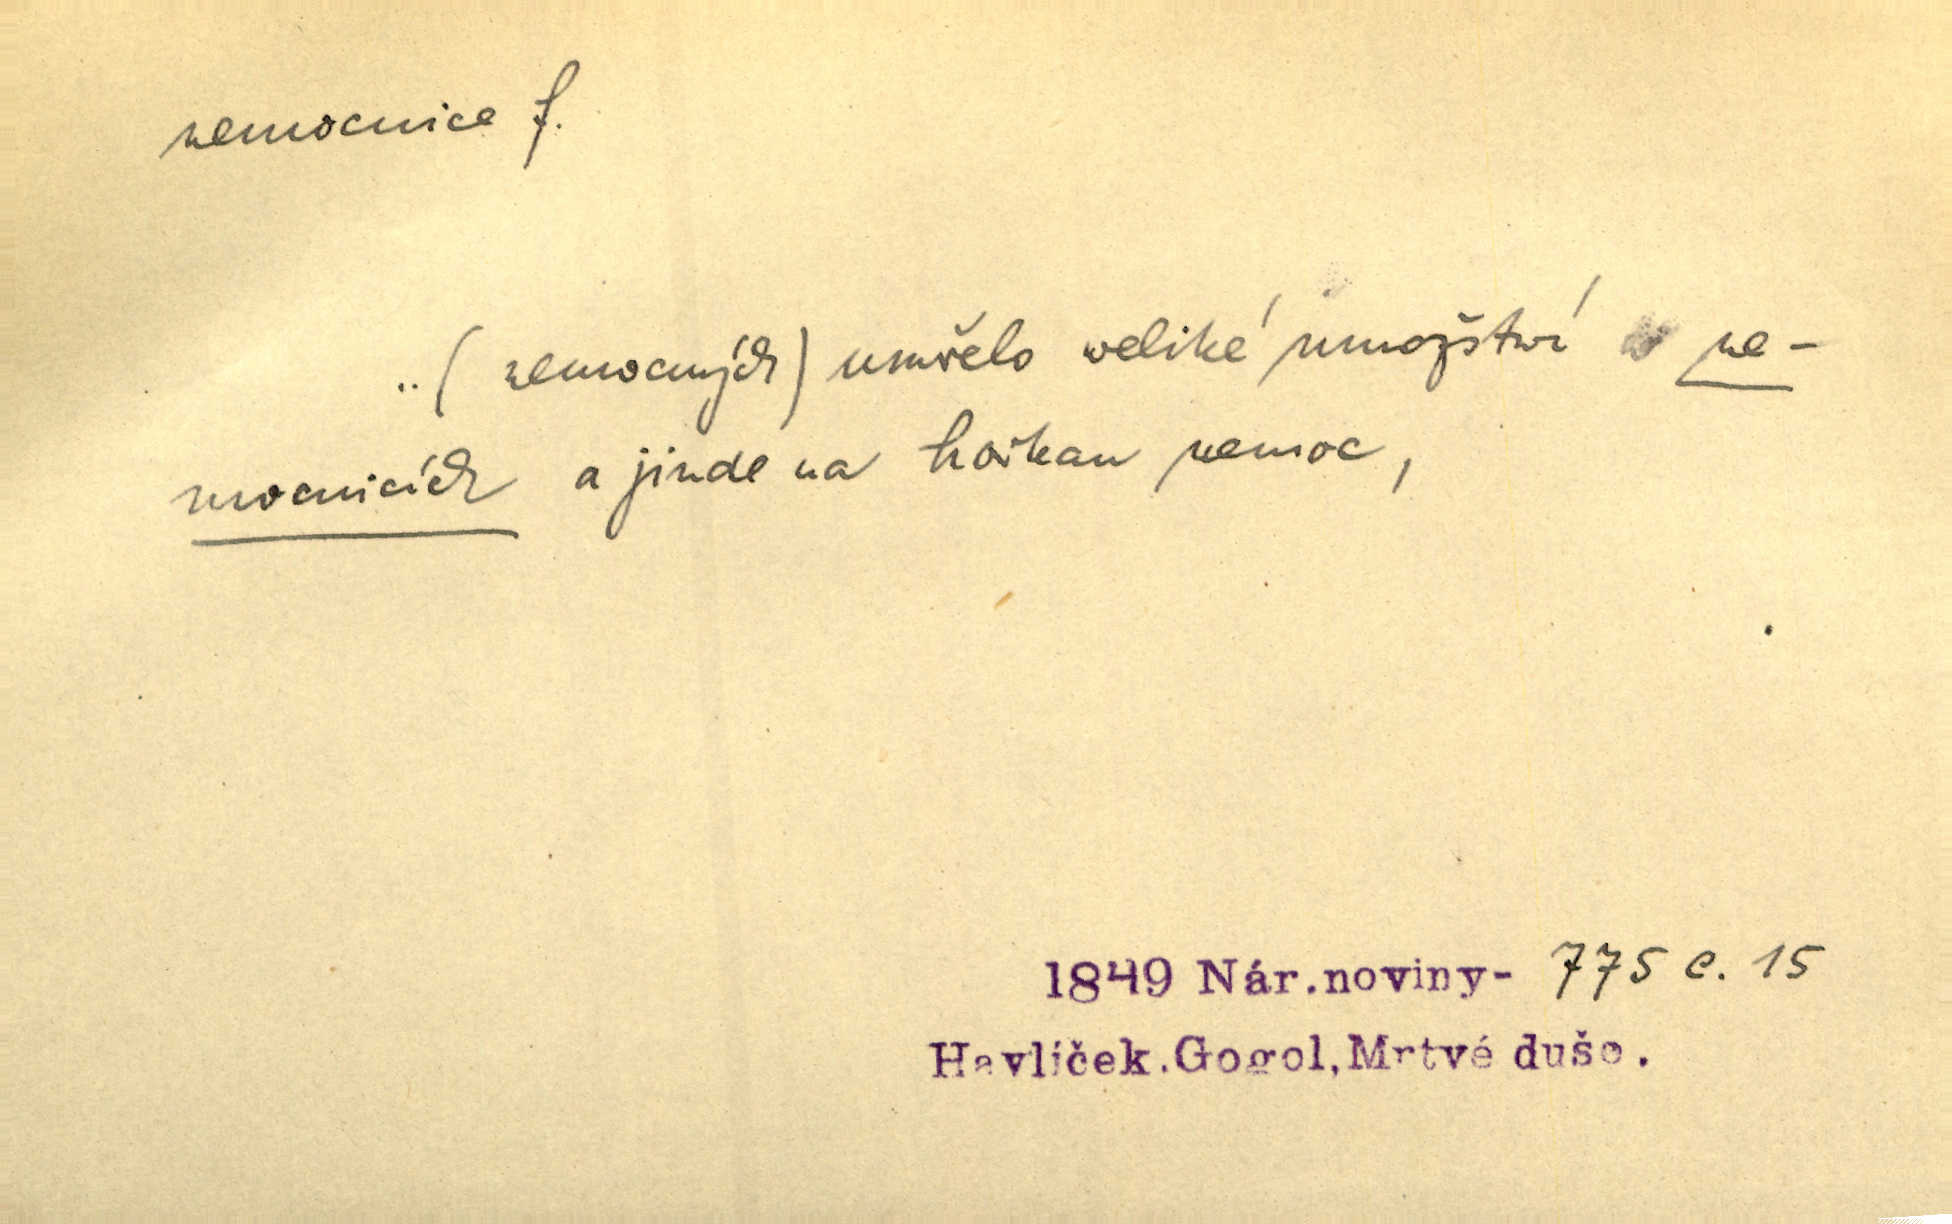 nemocnice f.
..(nemocných) umřelo veliké množství v ne-
mocnicích a jinde na hořkau nemoc,
1849 Nár.noviny- 775 c. 15
Havlíček.Gogol,Mrtvé duše.